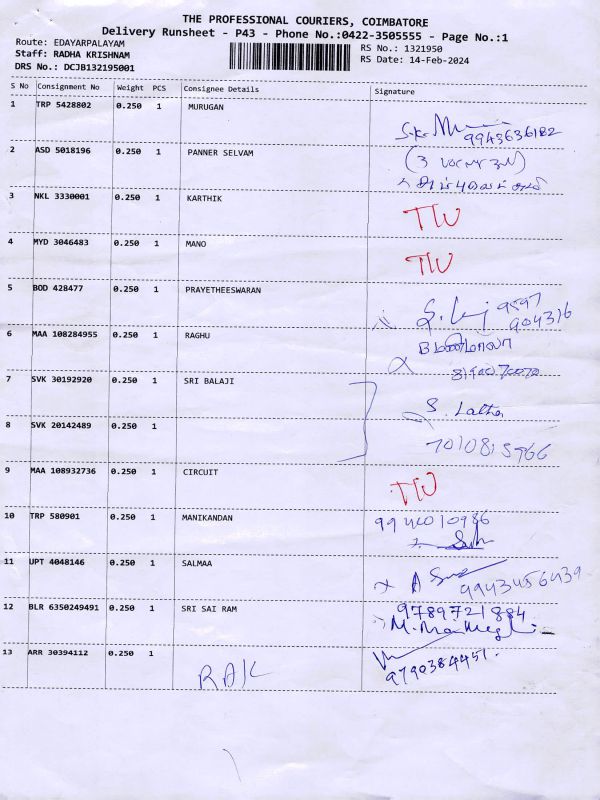 THE PROFESSIONAL COURIERS, COIMBATORE
Delivery Runsheet - P43 - Phone No.:0422-3505555 - Page No.:1
Route: EDAYARPALAYAM
Staff: RADHA KRISHNAM
DRS No.: DCJB132195001
RS No.: 1321950
RS Date: 14-Feb-2024
S No Consignment No Weight PCS Consignee Details Signature
1 TRP 5428802 0.250 1 MURUGAN
9943636182
2 ASD 5018196 0.250 1 PANNER SELVAM
3 NKL 3330001 0.250 1 KARTHIK
4 MYD 3046483 0.250 1 MANO
5 BOD 428477 0.250 1 PRAYETHEESWARAN
9597
904316
6 MAA 108284955 0.250 1 RAGHU
7 SVK 30192920 0.250 1 SRI BALAJI
S. Latha
8 SVK 20142489 0.250 1
9 MAA 108932736 0.250 1 CIRCUIT
10 TRP 580901 0.250 1 MANIKANDAN
11 UPT 4048146 0.250 1 SALMAA
9943456439
12 BLR 6350249491 0.250 1 SRI SAI RAM
9789721884
13 ARR 30394112 0.250 1
RAK
9790384451.